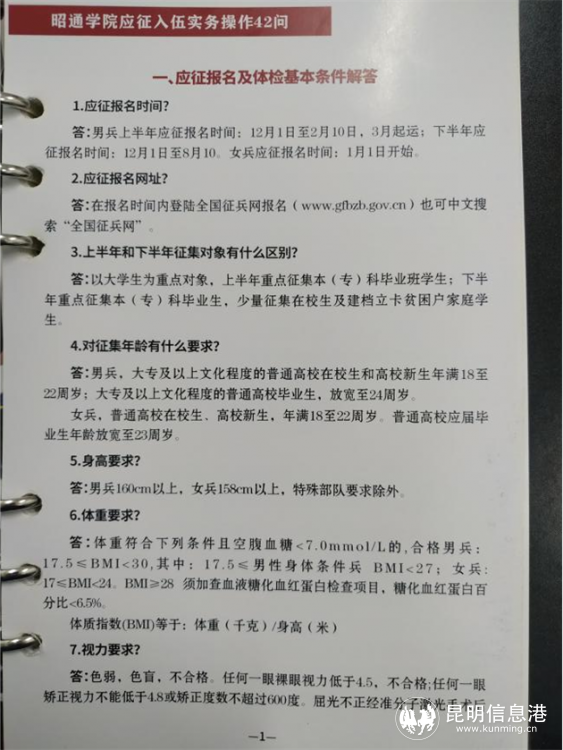 昭通学院应征入伍实务操作42问
一、应征报名及体检基本条件解答
1.应征报名时间?
答:男兵上半年应征报名时间：12月1日至2月10日，3月起运；下半年应
征报名时间：12月1日至8月10。女兵应征报名时间：1月1日开始。
2.应征报名网址?
答:在报名时间内登陆全国征兵网报名（www.gfbzb.gov.cn）也可中文搜
索“全国征兵网”。
3.上半年和下半年征集对象有什么区别?
答:以大学生为重点对象，上半年重点征集本（专）科毕业班学生；下半
年重点征集本（专）科毕业生，少量征集在校生及建档立卡贫困户家庭学
生。
4.对征集年龄有什么要求?
答:男兵，大专及以上文化程度的普通高校在校生和高校新生年满18至
22周岁；大专及以上文化程度的普通高校毕业生，放宽至24周岁。
女兵，普通高校在校生、高校新生，年满18至22周岁。普通高校应届毕
业生年龄放宽至23周岁。
5.身高要求?
答:男兵160cm以上，女兵158cm以上，特殊部队要求除外。
6.体重要求?
答:体重符合下列条件且空腹血糖<7.0mmol/L的,合格男兵：
17.5≤BMI<30,其中：17.5≤男性身体条件兵 BMI<27；女兵:
17≤BMI<24。BMI≥28 须加查血液糖化血红蛋白检查项目，糖化血红蛋白百
分比<6.5%。
体质指数(BMI)等于：体重（千克）/身高（米）
7.视力要求?
答:色弱，色盲，不合格。任何一眼裸眼视力低于4.5，不合格;任何一眼
矫正视力不能低于4.8或矫正度数不超过600度。屈光不正经准分子激光手术后
—1—
昆明信息港
www.kunming.cn